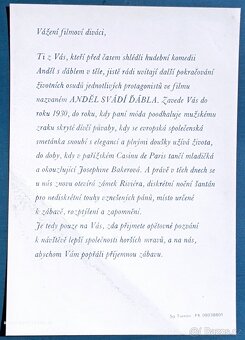 Vážení filmoví diváci,
Ti z Vás, kteří před časem shlédli hudební komedii
Anděl s ďáblem v těle, jistě rádi uvítají další pokračování
životních osudů jednotlivých protagonistů ve filmu
nazvaném ANDĚL SVÁDÍ ĎÁBLA. Zavede Vás do
roku 1930, do roku, kdy paní móda poodhaluje mužskému
zraku skryté dívčí půvaby, kdy se evropská společenská
smetánka snoubí s elegancí a plnými doušky užívá života,
do doby, kdy v pařížském Casinu de Paris tančí mladičká
a okouzlující Josephine Bakerová. A právě v těch dnech se
u nás znovu otevírá zámek Riviéra, diskrétní noční šantán
pro nediskrétní touhy vznešených pánů, místo určené
k zábavě, rozptýlení a zapomnění.
Je tedy pouze na Vás, zda přijmete opětovné pozvání
k návštěvě lepší společnosti horších mravů, a na nás,
abychom Vám popřáli příjemnou zábavu.